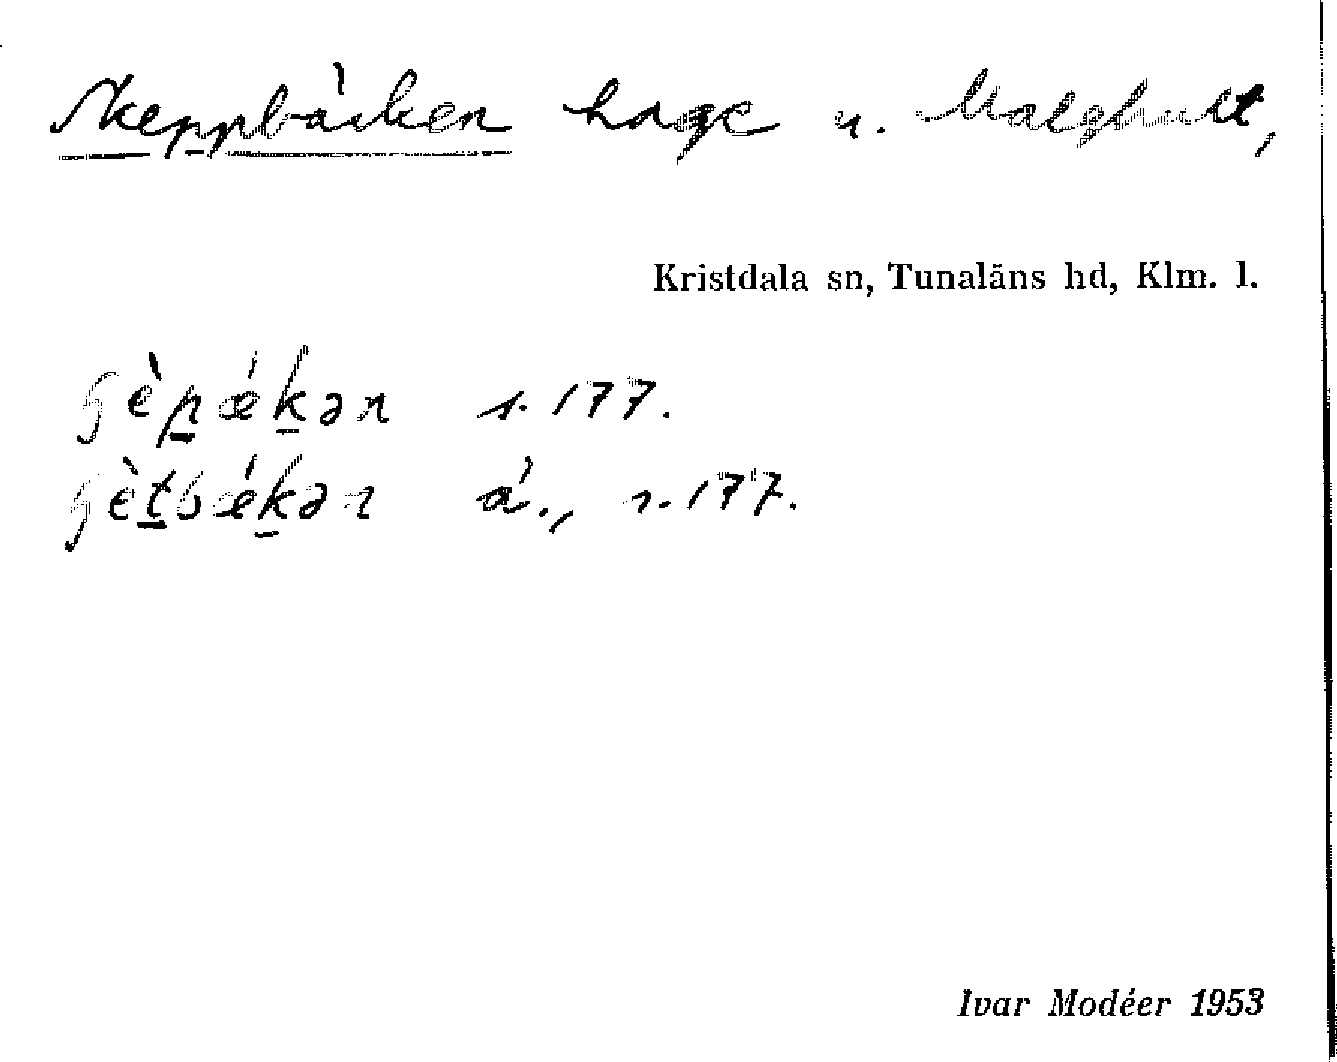 Skeppbäcken hage u. Malghult,
Kristdala sn, Tunaläns hd, Klm. l.
s. 177.
ä., s. 177.
Ivar Modéer 1953